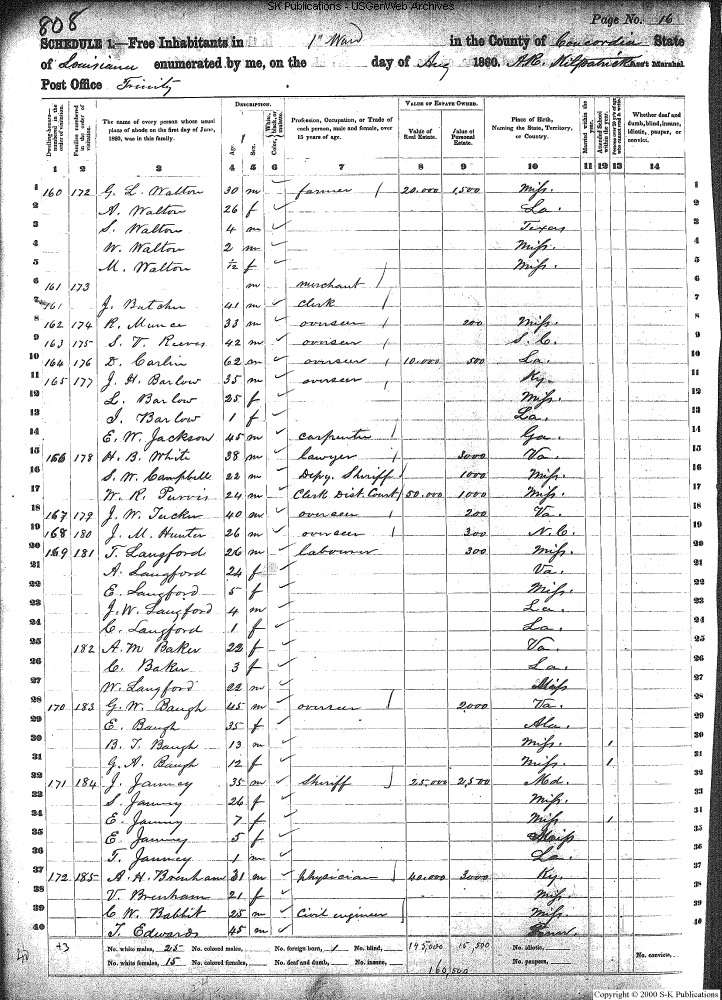 SK Publications - USGenWeb Archives
808
Page No. 16
SCHEDULE 1.—Free Inhabitants in 1st Ward in the County of Concordia State
of Louisiana enumerated by me, on the day of Aug 1860. Ass't Marshal
Post Office Trinity
DESCRIPTION. VALUE OF ESTATE OWNED.
Dwelling-houses numbered in the order of visitation. Families numbered in the order of visitation. The name of every person whose usual place of abode on the first day of June, 1860, was in this family. Age. Sex. Color, White, black, or mulatto. Profession, Occupation, or Trade of each person, male and female, over 15 years of age. Value of Real Estate. Value of Personal Estate. Place of Birth, Naming the State, Territory, or Country. Married within the year. Attended School within the year. Persons over 20 y'rs of age who cannot read & write. Whether deaf and dumb, blind, insane, idiotic, pauper, or convict.
1 2 3 4 5 6 7 8 9 10 11 12 13 14
1 160 172 G. L. Walton 30 m farmer / 20.000 1,500 Miss. 1
2 A. Walton 26 f La. 2
3 S. Walton 4 m Texas 3
4 W. Walton 2 m Miss. 4
5 M. Walton 1/12 f Miss. 5
6 161 173 m merchant / 6
7 161 J. Butcher 41 m clerk / 7
8 162 174 R. Munce 33 m overseer / 200 Miss. 8
9 163 175 S. T. Reeves 42 m overseer / S. C. 9
10 164 176 D. Carlin 62 m overseer / 10.000 500 La. 10
11 165 177 J. H. Barlow 35 m overseer / Ky. 11
12 L. Barlow 25 f Miss. 12
13 I. Barlow 1 f La. 13
14 E. W. Jackson 45 m carpenter / Ga. 14
15 166 178 H. B. White 38 m lawyer / 3000 Va. 15
16 S. W. Campbelle 22 m Depy. Sheriff / 1000 Miss. 16
17 W. R. Purvis 24 m Clerk Dist. Court / 50.000 1000 Miss. 17
18 167 179 J. W. Tucker 40 m overseer / 200 Va. 18
19 168 180 J. M. Hunter 26 m overseer / 300 N. C. 19
20 169 181 T. Langford 26 m labourer 300 Miss. 20
21 A. Langford 24 f Va. 21
22 E. Langford 5 f Miss. 22
23 J. W. Langford 4 m La. 23
24 C. Langford 1 f La. 24
25 182 A. M Baker 22 f Va. 25
26 C. Baker 3 f La. 26
27 W. Langford 22 m Miss 27
28 170 183 G. W. Baugh 45 m overseer / 2,000 Va. 28
29 E. Baugh 35 f Ala. 29
30 B. T. Baugh 13 m Miss. 1 30
31 G. A. Baugh 12 f Miss. 1 31
32 171 184 J. Janney 35 m Sheriff / 25,000 2,500 Md. 32
33 S. Janney 26 f Miss. 33
34 E. Janney 7 f Miss 1 34
35 E. Janney 5 f Miss 35
36 T. Janney 1 m La. 36
37 172 185 A. H. Brenham 31 m physician / 40.000 3000 Ky. 37
38 V. Brenham 21 f Miss. 38
39 C. W. Babbit 25 m Civil engineer Miss. 39
40 T. Edwards 45 m 40
43 No. white males, 25 No. colored males, No. foreign born, 1 No. blind, 145,000 15,500 No. idiotic, No. convicts,
No. white females, 15 No. colored females, No. deaf and dumb, No. insane, 160,500 No. paupers,
Copyright © 2000 S-K Publications